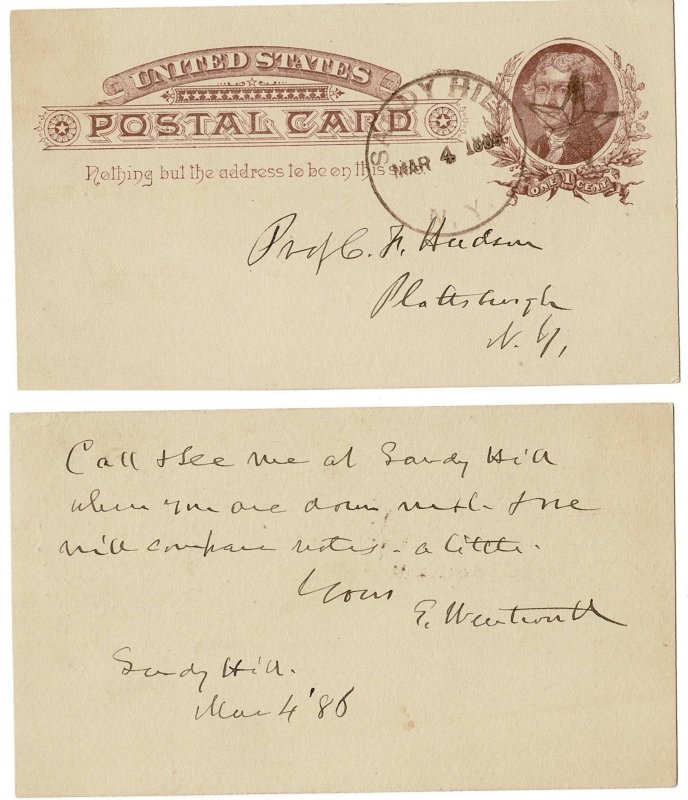 UNITED STATES
POSTAL CARD
Nothing but the address to be on this side.
SANDY HILL
MAR 4 1886
N.Y.
ONE 1 CENT
Prof C. F. Hudson
Plattsburgh
N.Y,
Call & See me at Sandy Hill
when you are down next & we
will compare notes - a little.
Yours
E. Wentworth
Sandy Hill.
Mar 4 '86